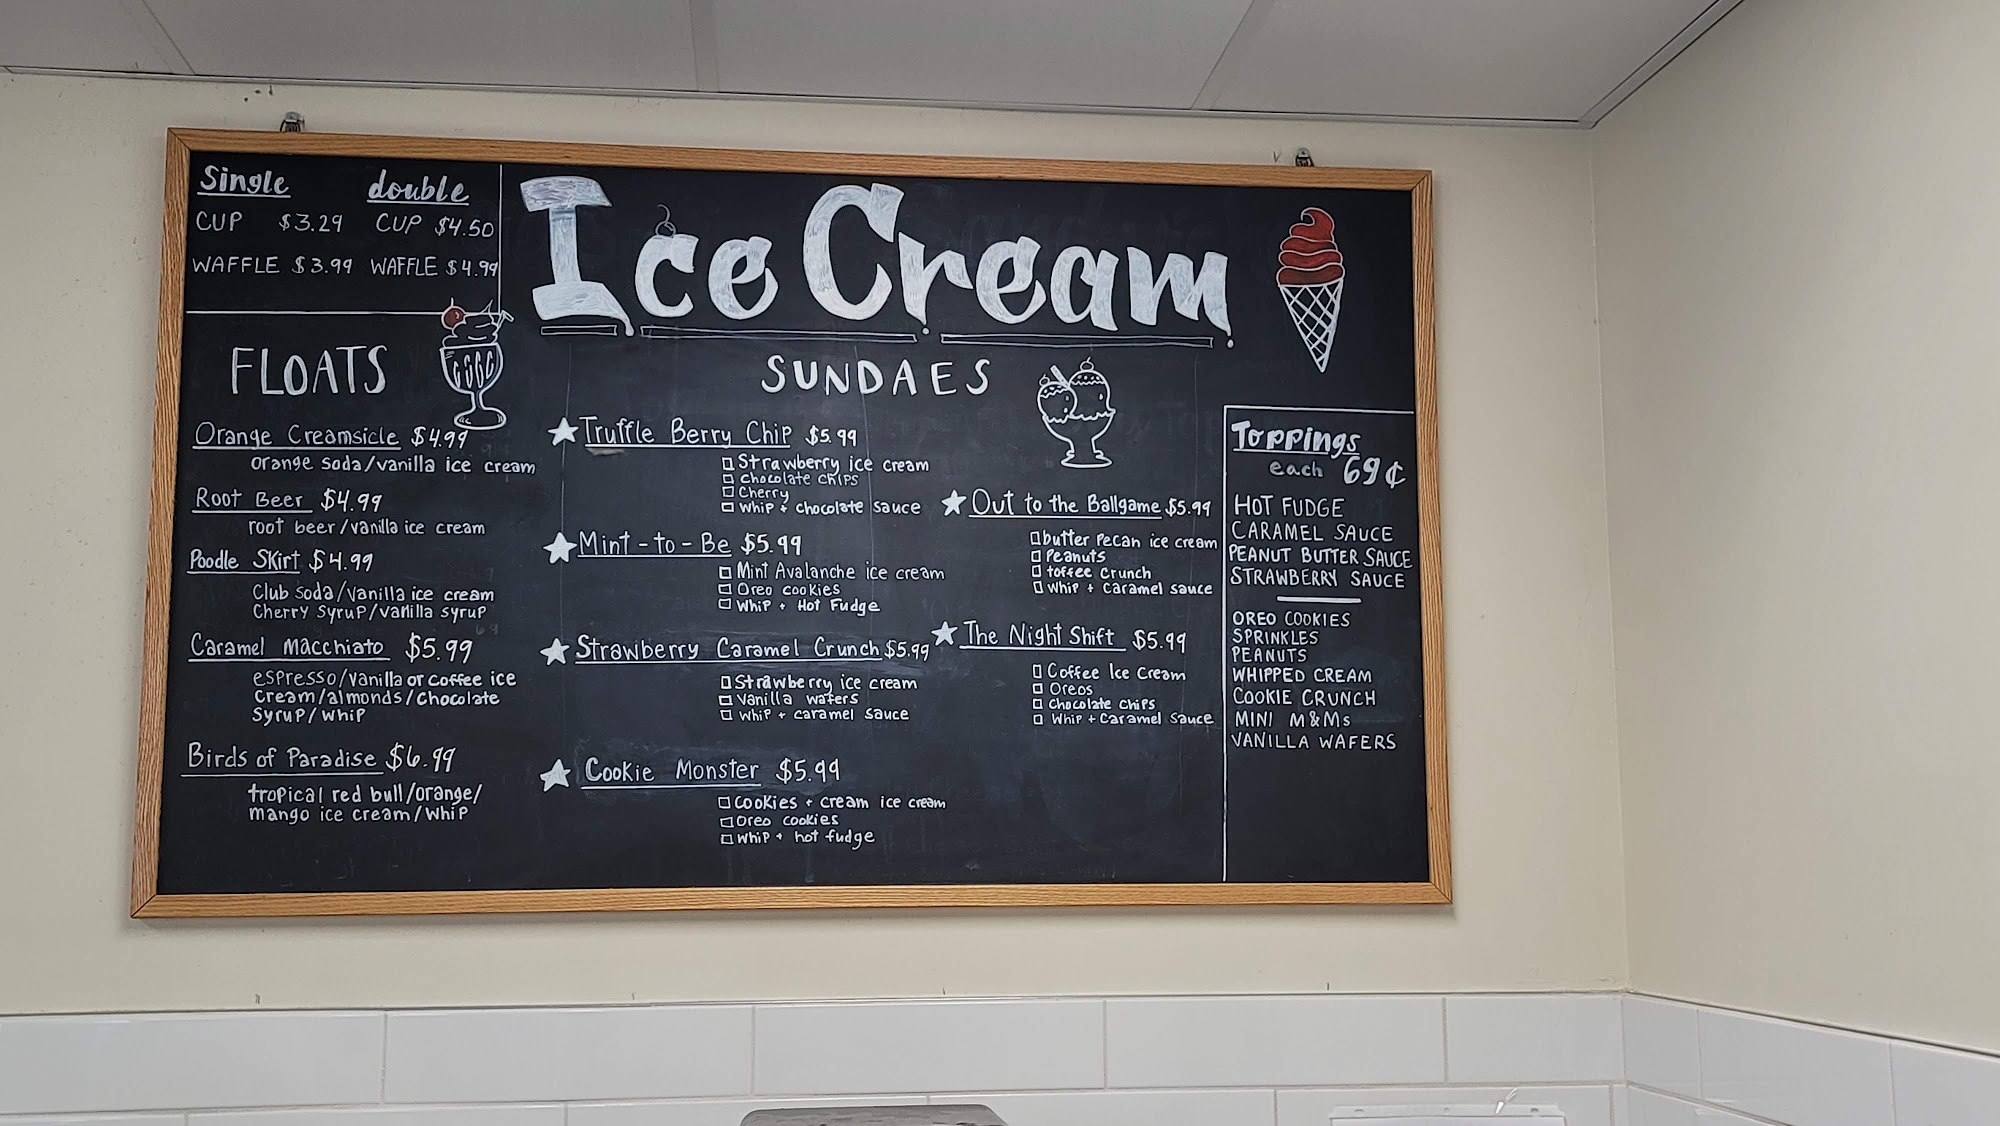 Single double
CUP $3.29 CUP $4.50
WAFFLE $3.99 WAFFLE $4.99
Ice Cream
FLOATS
Orange Creamsicle $4.99
orange soda/vanilla ice cream
Root Beer $4.99
root beer/vanilla ice cream
Poodle Skirt $4.99
Club soda/vanilla ice cream
Cherry syrup/vanilla syrup
Caramel macchiato $5.99
espresso/vanilla or coffee ice
cream/almonds/chocolate
syrup/whip
Birds of Paradise $6.99
tropical red bull/orange/
mango ice cream/whip
SUNDAES
Truffle Berry Chip $5.99
Strawberry ice cream
chocolate chips
Cherry
whip + chocolate sauce
Mint-to-Be $5.99
Mint Avalanche ice cream
Oreo cookies
Whip + Hot Fudge
Strawberry Caramel Crunch $5.99
Strawberry ice cream
Vanilla wafers
whip + caramel sauce
Cookie Monster $5.99
cookies + cream ice cream
Oreo cookies
whip + hot fudge
Out to the Ballgame $5.99
butter pecan ice cream
Peanuts
toffee crunch
whip + caramel sauce
The Night Shift $5.99
Coffee Ice Cream
Oreos
chocolate chips
Whip + Caramel Sauce
Toppings
each 69¢
HOT FUDGE
CARAMEL SAUCE
PEANUT BUTTER SAUCE
STRAWBERRY SAUCE
OREO COOKIES
SPRINKLES
PEANUTS
WHIPPED CREAM
COOKIE CRUNCH
MINI M&Ms
VANILLA WAFERS